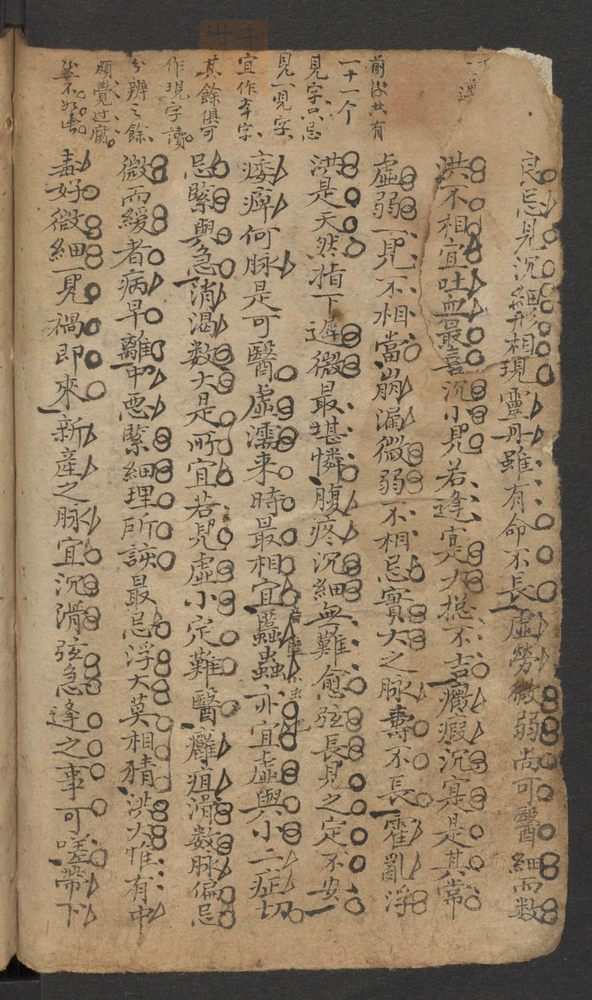 前後共有
一十一个
見字只忌
見一見字
宜作本字
其餘俱可
作現字讀
分辨之餘
頗覺过腐
良忌見沉細形相現靈丹雖有命不長虛勞微弱尚可醫細而數
洪不相宜吐血最喜沉小見若逢寔大揔不吉癥瘕沉寔是其常
虛弱一見不相當崩漏微弱不相忌實大之脉壽不長霍亂浮
洪是天然指下遲微最堪憐腹疼沉細無難愈弦長見之定不安
痿痺何脉是可醫虛濡来時最相宜䘌蟲亦宜虛與小二症切
忌緊與急消渴数大是所宜若見虛小定難醫癰疽滑数脉偏忌
微而緩者病早離中惡緊細理所該最忌浮大莫相猜洪大惟有中
毒好微細一見禍即來新産之脉宜沉滑弦急逢之事可嗟帶下